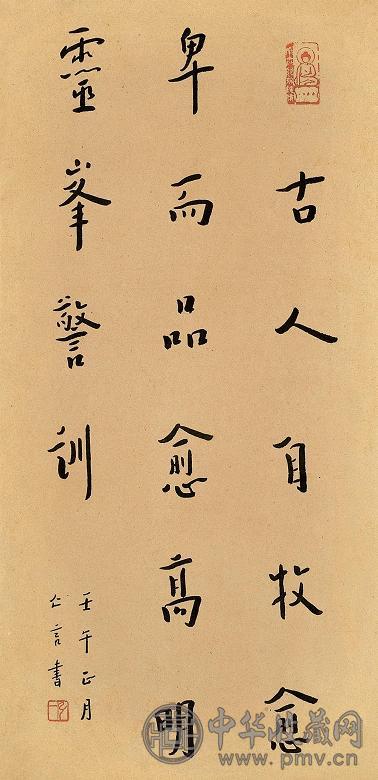 古人自牧愈
卑而品愈高明
靈峯警訓
壬午正月
亡言書
中华收藏网
www.pmv.cn